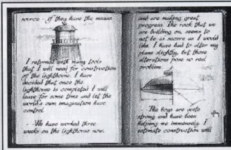 worse. If they have the means
I returned with many tools
that I will need for construction
of the lighthouse. I have
decided that once the
lighthouse is completed I will
leave for some time and let the
world's own imagination have
control.
We have worked three
weeks on the lighthouse now.
and are making great
progress. The rock that we
are building on, seems to
not be as secure as I would
like. I have had to alter my
plans slightly, but these
alterations pose no real
problem.
The boys are quite
strong and have been
helping me immensely. I
estimate construction will